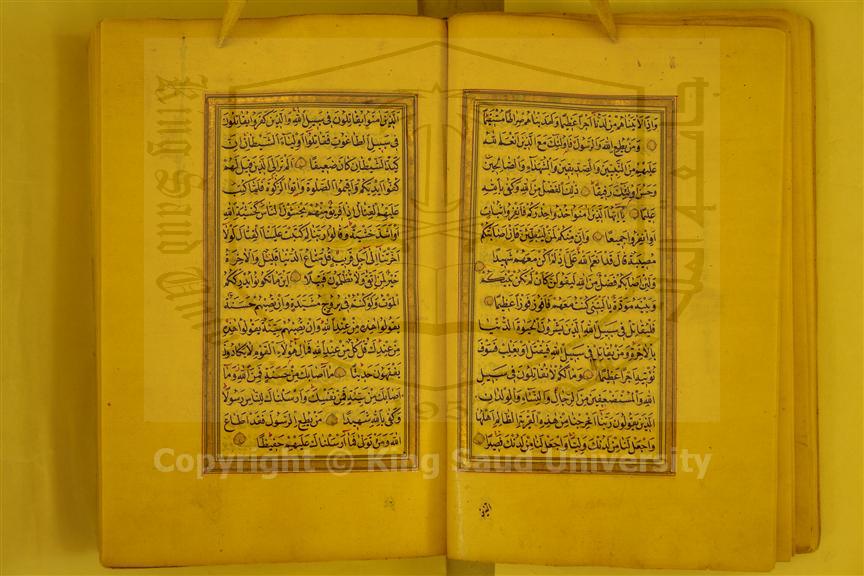 واذا لاتيناهم من لدنا اجرا عظيما ولهديناهم صراطا مستقيما
ومن يطع الله والرسول فاولئك مع الذين انعم الله
عليهم من النبيين والصديقين والشهداء والصالحين
وحسن اولئك رفيقا ذلك الفضل من الله وكفى بالله
عليما يا ايها الذين امنوا خذوا حذركم فانفروا ثبات
او انفروا جميعا وان منكم لمن ليبطئن فان اصابتكم
مصيبة قال قد انعم الله علي اذ لم اكن معهم شهيدا
ولئن اصابكم فضل من الله ليقولن كان لم تكن بينكم
وبينه مودة يا ليتني كنت معهم فافوز فوزا عظيما
فليقاتل في سبيل الله الذين يشرون الحيوة الدنيا
بالاخرة ومن يقاتل في سبيل الله فيقتل او يغلب فسوف
نؤتيه اجرا عظيما وما لكم لا تقاتلون في سبيل
الله والمستضعفين من الرجال والنساء والولدان
الذين يقولون ربنا اخرجنا من هذه القرية الظالم اهلها
واجعل لنا من لدنك وليا واجعل لنا من لدنك نصيرا
الذين
الذين امنوا يقاتلون في سبيل الله والذين كفروا يقاتلون
في سبيل الطاغوت فقاتلوا اولياء الشيطان ان
كيد الشيطان كان ضعيفا الم تر الى الذين قيل لهم
كفوا ايديكم واقيموا الصلوة واتوا الزكوة فلما كتب
عليهم القتال اذا فريق منهم يخشون الناس كخشية الله
او اشد خشية وقالوا ربنا لم كتبت علينا القتال لولا
اخرتنا الى اجل قريب قل متاع الدنيا قليل والاخرة
خير لمن اتقى ولا تظلمون فتيلا اين ما تكونوا يدرككم
الموت ولو كنتم في بروج مشيدة وان تصبهم حسنة
يقولوا هذه من عند الله وان تصبهم سيئة يقولوا هذه
من عندك قل كل من عند الله فمال هؤلاء القوم لا يكادون
يفقهون حديثا ما اصابك من حسنة فمن الله وما
اصابك من سيئة فمن نفسك وارسلناك للناس رسولا
وكفى بالله شهيدا من يطع الرسول فقد اطاع
الله ومن تولى فما ارسلناك عليهم حفيظا
Copyright © King Saud University
King Saud University